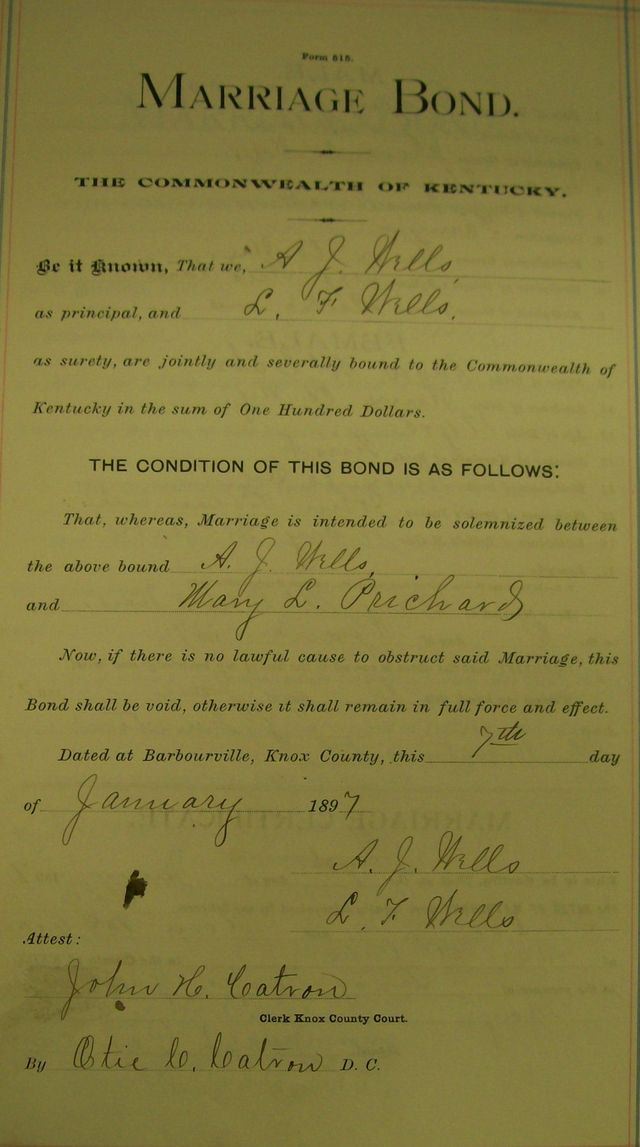 Form 515.
MARRIAGE BOND.
THE COMMONWEALTH OF KENTUCKY.
Be it Known, That we, A J. Wells,
as principal, and L. F Wells,
as surety, are jointly and severally bound to the Commonwealth of
Kentucky in the sum of One Hundred Dollars.
THE CONDITION OF THIS BOND IS AS FOLLOWS:
That, whereas, Marriage is intended to be solemnized between
the above bound A. J. Wells,
and Mary L. Prichard
Now, if there is no lawful cause to obstruct said Marriage, this
Bond shall be void, otherwise it shall remain in full force and effect.
Dated at Barbourville, Knox County, this 7th day
of January 1897
A. J. Wells
L. F Wells
Attest:
John H. Catron
Clerk Knox County Court.
By C. Catron D. C.